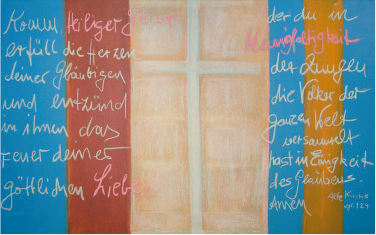 Komm Heiliger Geist
erfüll die Herzen
deiner Gläubigen
und entzünd
in ihnen das
Feuer deiner
göttlichen Liebe
der du in
Mannigfaltigkeit
der Zungen
die Völker der
ganzen Welt
versammelt
hast in Einigkeit
des Glaubens.
Amen
Alte Kirche